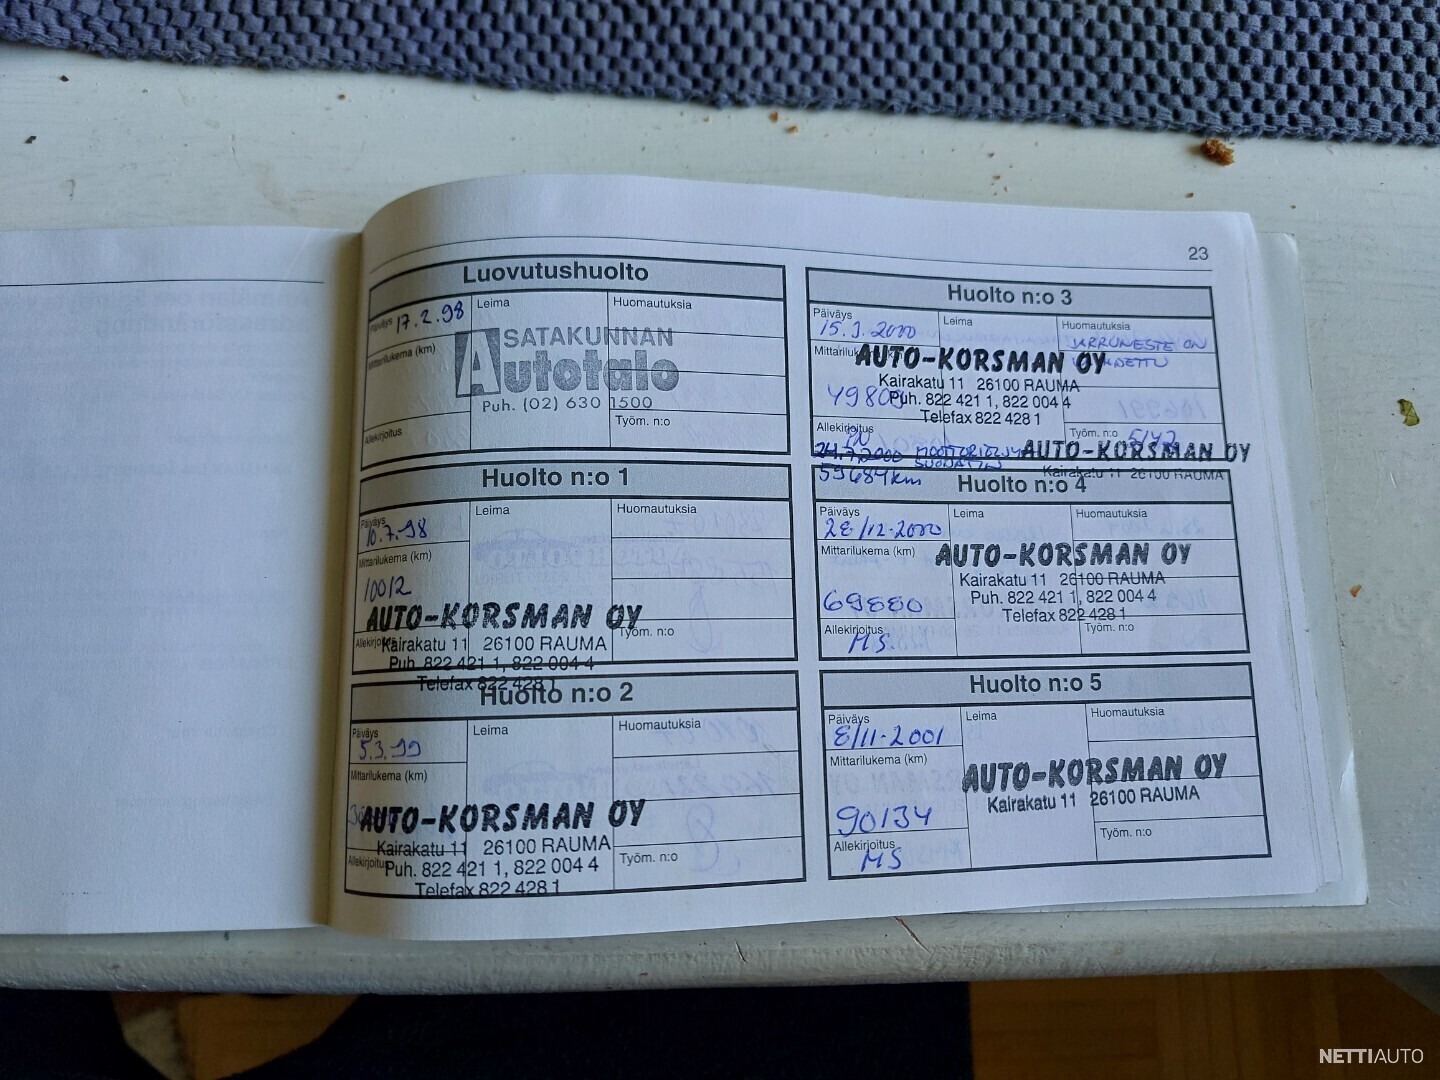 23
Luovutushuolto
Päiväys 17.2.98
Leima
Huomautuksia
Mittarilukema (km)
SATAKUNNAN
Autotalo
Puh. (02) 630 1500
Allekirjoitus
Työm. n:o
Huolto n:o 1
Päiväys
10.7.98
Leima
Huomautuksia
Mittarilukema (km)
10012
AUTO-KORSMAN OY
Kairakatu 11 26100 RAUMA
Puh. 822 421 1, 822 004 4
Telefax 822 428 1
Allekirjoitus
Työm. n:o
Huolto n:o 2
Päiväys
5.3.99
Leima
Huomautuksia
Mittarilukema (km)
AUTO-KORSMAN OY
Kairakatu 11 26100 RAUMA
Puh. 822 421 1, 822 004 4
Telefax 822 428 1
Allekirjoitus
Työm. n:o
Huolto n:o 3
Päiväys
15.3.2000
Leima
Huomautuksia
JARRUNESTE ON
Mittarilukema
AUTO-KORSMAN OY
Kairakatu 11 26100 RAUMA
Puh. 822 421 1, 822 004 4
Telefax 822 428 1
Allekirjoitus
Työm. n:o
24.7.2000
SUODATIN
AUTO-KORSMAN OY
Kairakatu 11 26100 RAUMA
59684km
Huolto n:o 4
Päiväys
28/12-2000
Leima
Huomautuksia
Mittarilukema (km)
69880
AUTO-KORSMAN OY
Kairakatu 11 26100 RAUMA
Puh. 822 421 1, 822 004 4
Telefax 822 428 1
Allekirjoitus
MS.
Työm. n:o
Huolto n:o 5
Päiväys
8/11-2001
Leima
Huomautuksia
Mittarilukema (km)
90134
AUTO-KORSMAN OY
Kairakatu 11 26100 RAUMA
Allekirjoitus
MS
Työm. n:o
NETTIAUTO